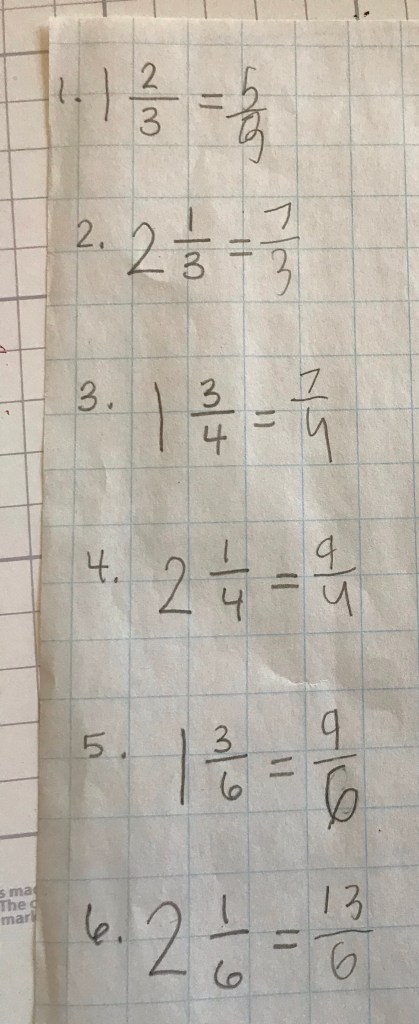 1. 1 2/3 = 5/
2. 2 1/3 = 7/3
3. 1 3/4 = 7/4
4. 2 1/4 = 9/4
5. 1 3/6 = 9/6
6. 2 1/6 = 13/6
s ma
The
mark